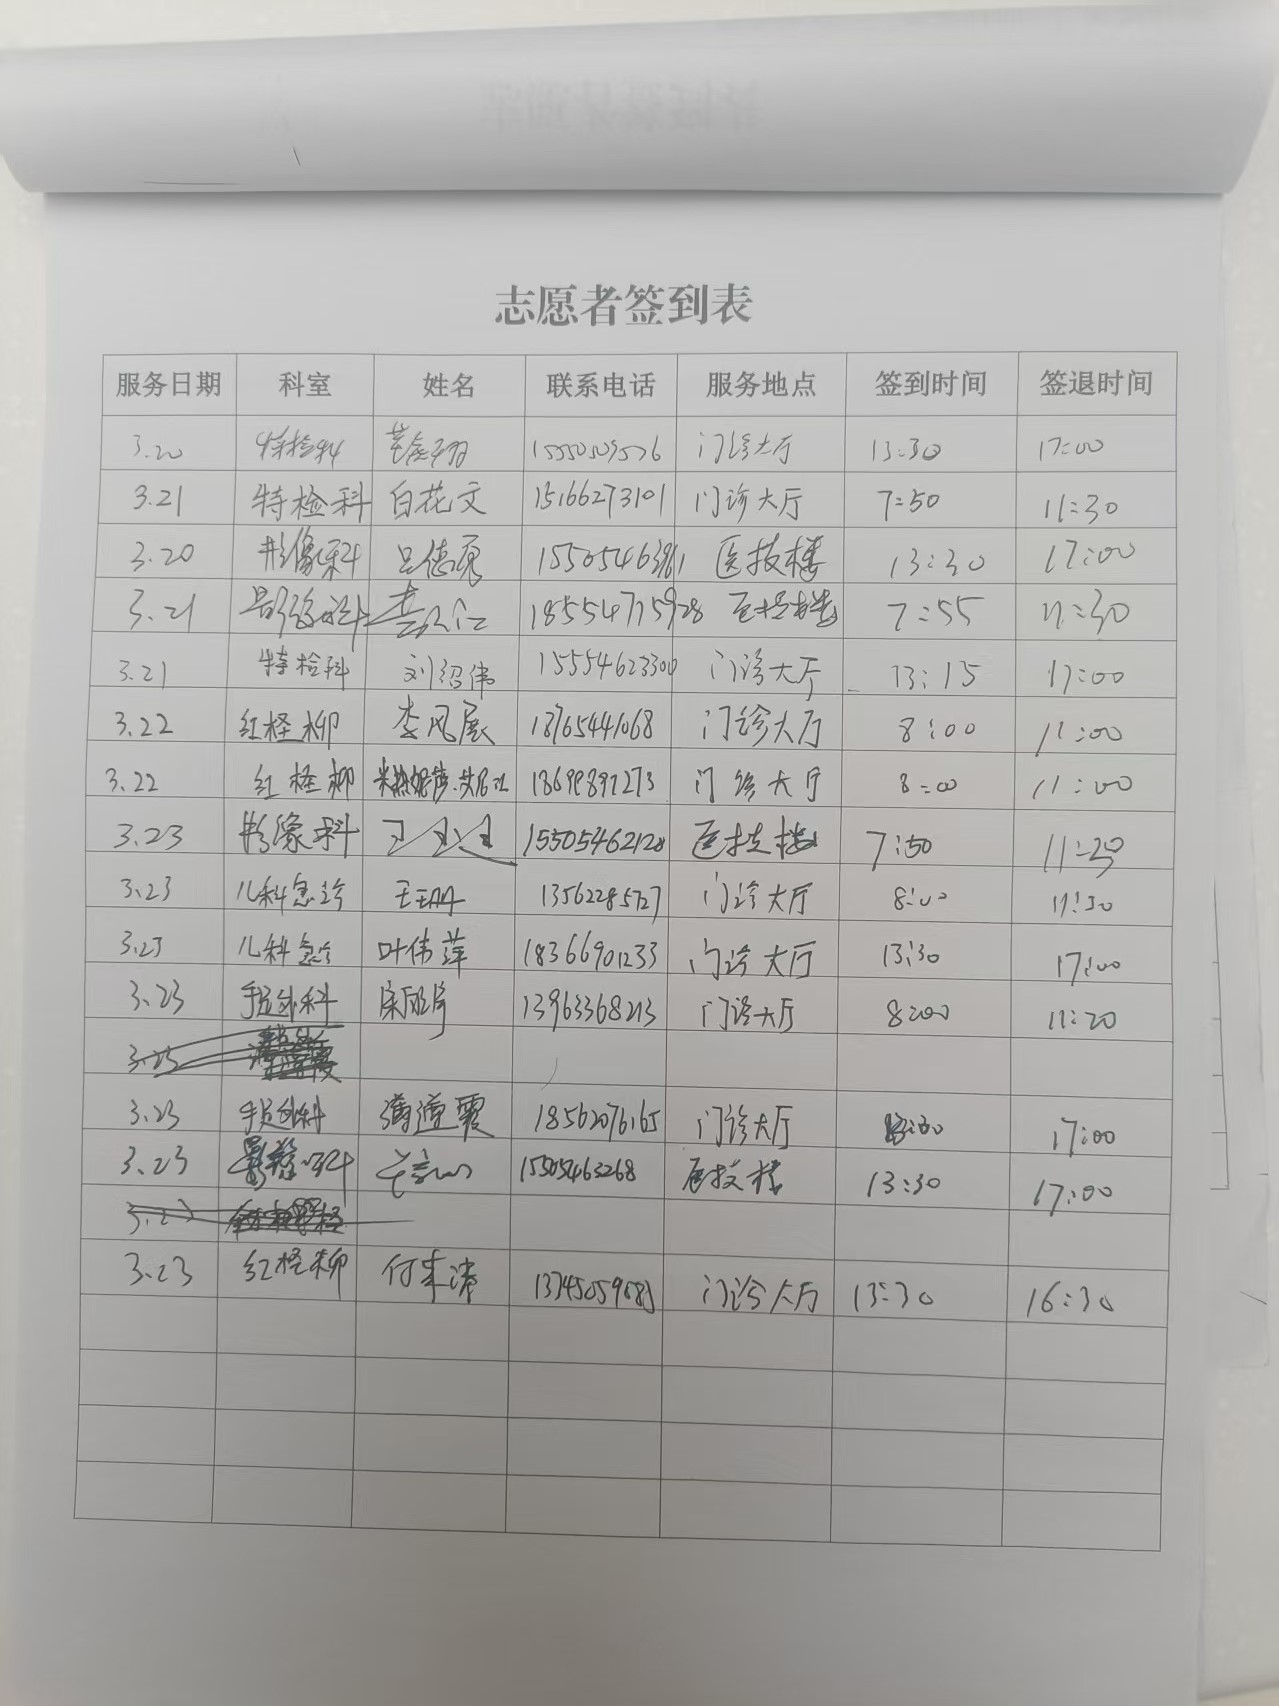 志愿者签到表
服务日期 科室 姓名 联系电话 服务地点 签到时间 签退时间
3.20 特检科 15550509576 门诊大厅 13:30 17:00
3.21 特检科 白花文 15166273101 门诊大厅 7:50 11:30
3.20 影像科 吕德亮 医技楼 13:30 17:00
3.21 影像科 18554715928 医技楼 7:55 11:30
3.21 特检科 刘绍伟 15554623300 门诊大厅 13:15 17:00
3.22 红柽柳 李风展 18765441068 门诊大厅 8:00 11:00
3.22 红柽柳 门诊大厅 8:00 11:00
3.23 影像科 15505462128 医技楼 7:50
3.23 儿科急诊 王珊 13562285727 门诊大厅 8:00 11:30
3.23 儿科急诊 叶伟萍 18366901233 门诊大厅 13:30 17:00
3.23 手足外科 13963368213 门诊大厅 8:00 11:20
3.23
3.23 手足外科 18562076165 门诊大厅 17:00
3.23 影像科 15505463268 医技楼 13:30 17:00
3.23 红柽柳 付来清 门诊大厅 13:30 16:30